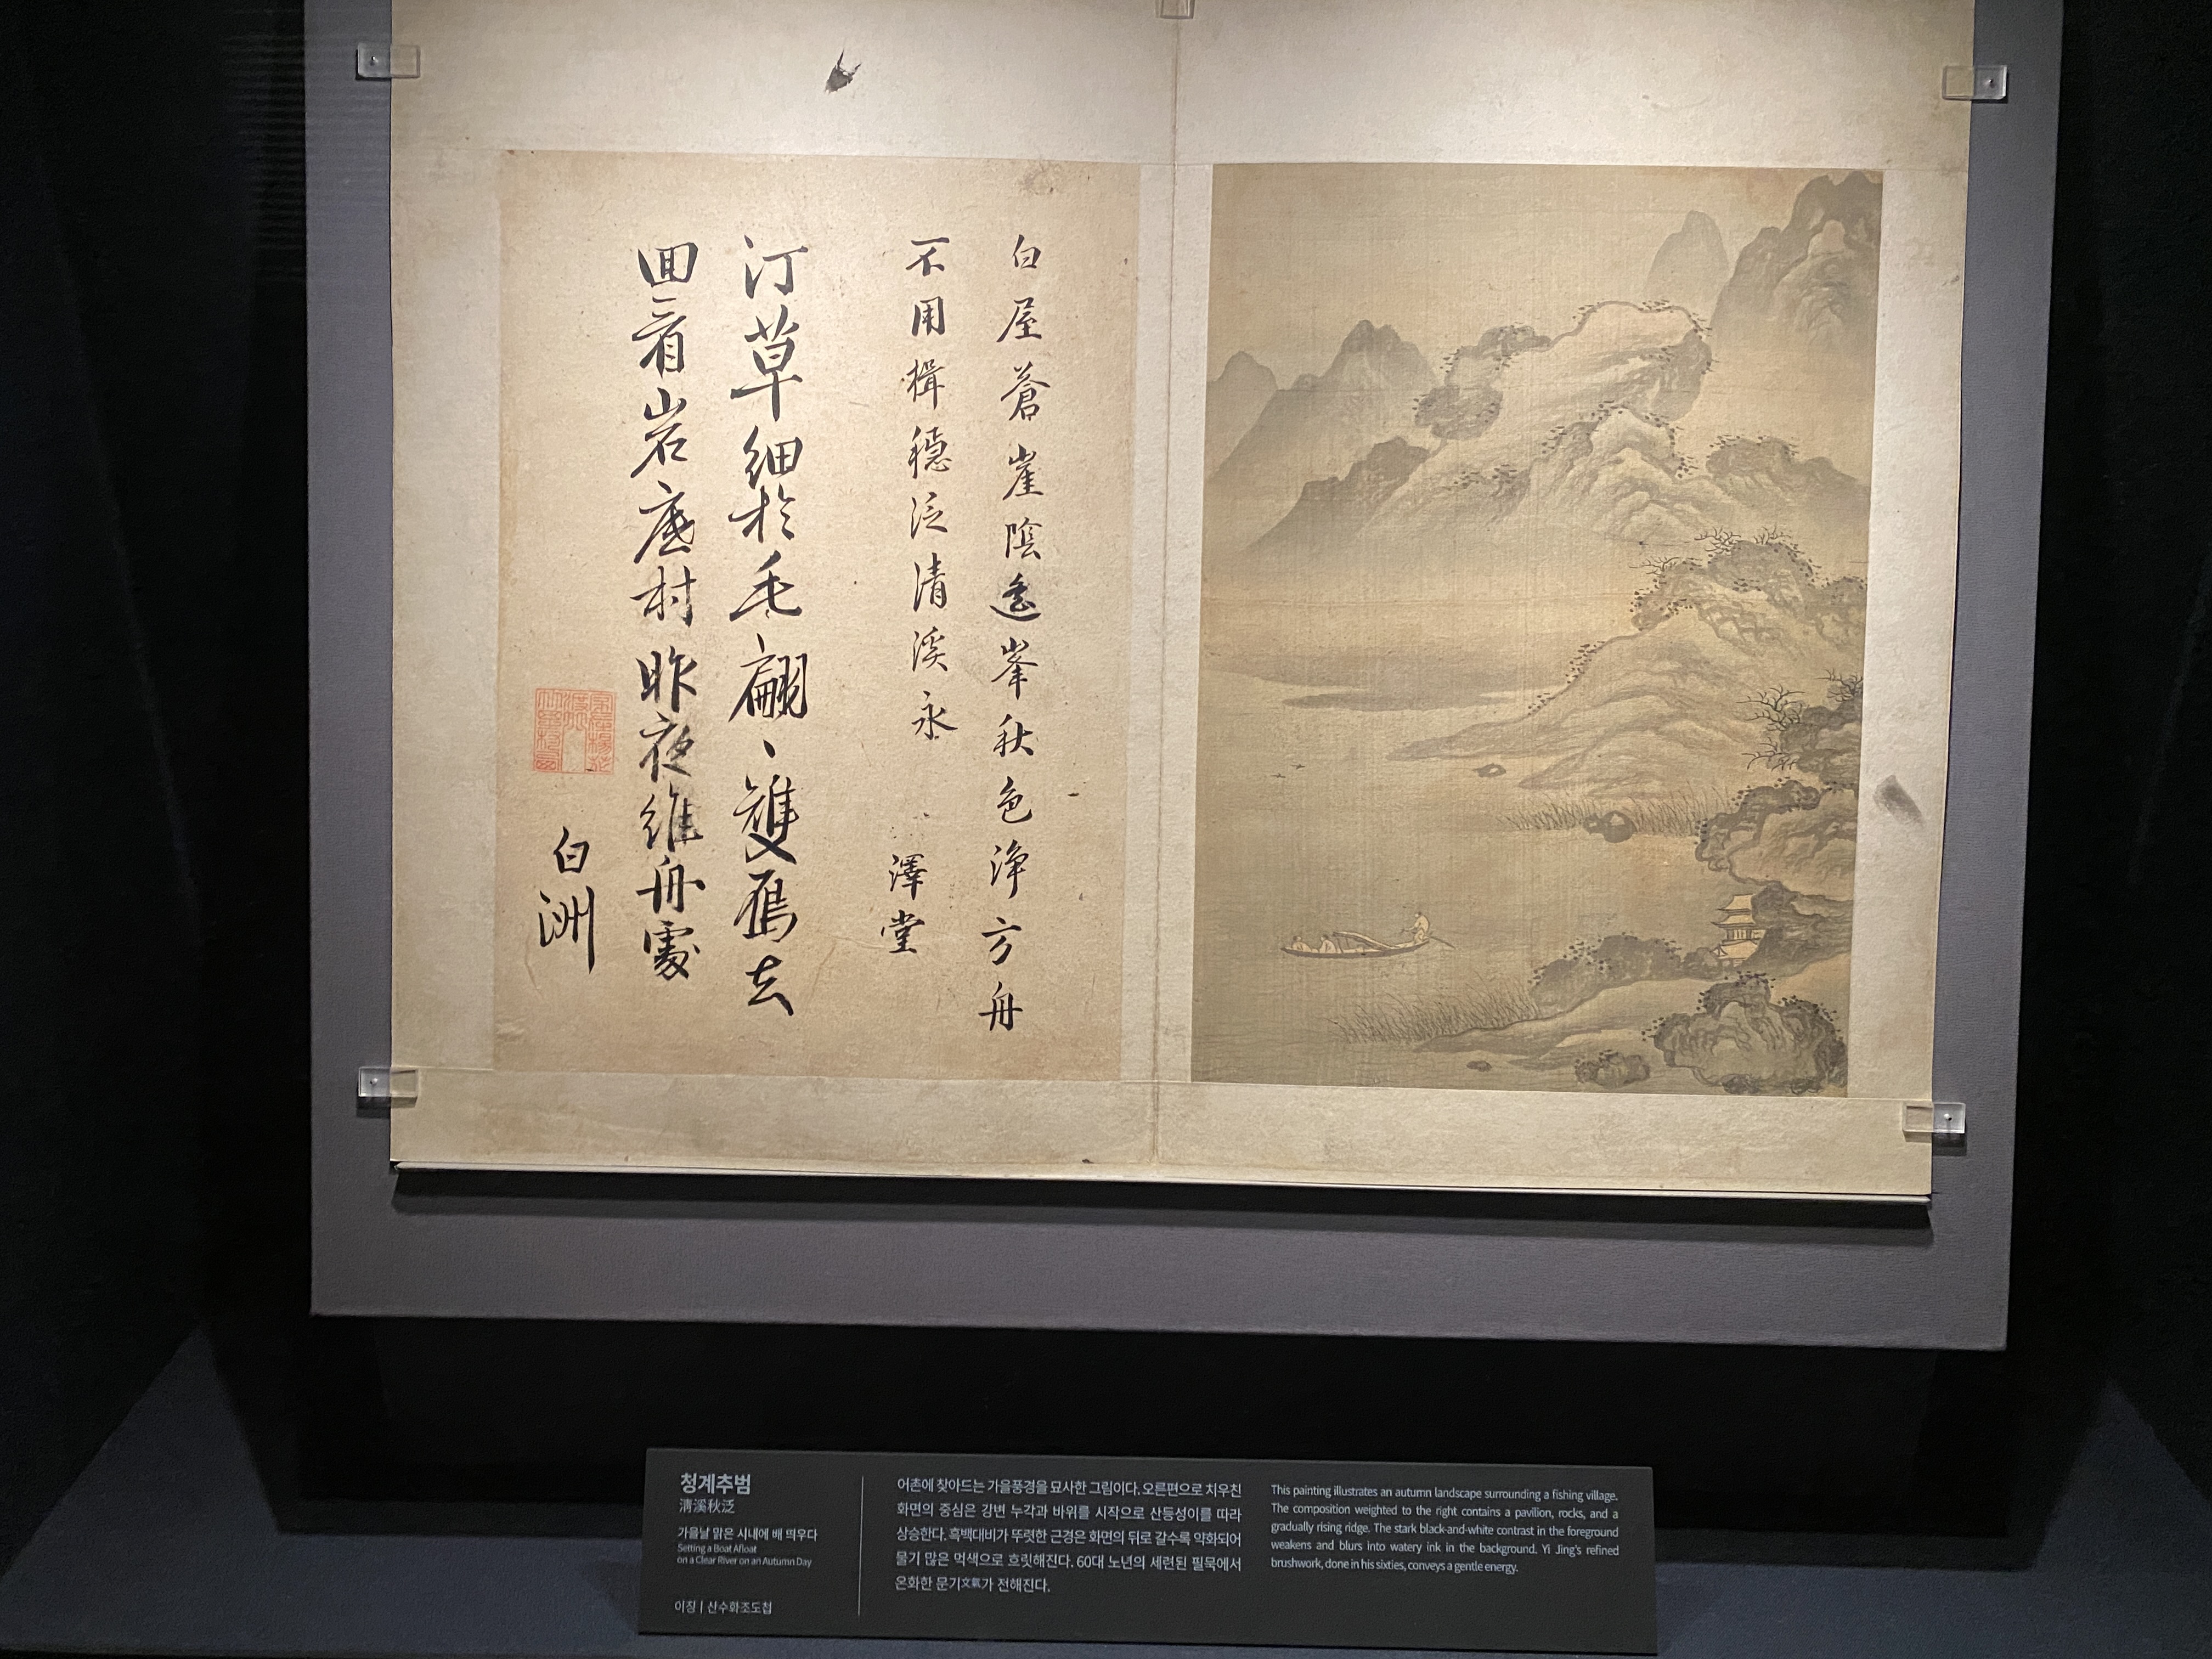 白屋蒼崖陰遙峯秋色淨方舟
不用楫穩泛清溪永
澤堂
汀草細於毛翩〻雙鴈去
回看山岩底村昨夜維舟處
白洲
청계추범
淸溪秋泛
가을날 맑은 시내에 배 띄우다
Setting a Boat Afloat
on a Clear River on an Autumn Day
이징 | 산수화조도첩
어촌에 찾아드는 가을풍경을 묘사한 그림이다. 오른편으로 치우친
화면의 중심은 강변 누각과 바위를 시작으로 산등성이를 따라
상승한다. 흑백대비가 뚜렷한 근경은 화면의 뒤로 갈수록 약화되어
물기 많은 먹색으로 흐릿해진다. 60대 노년의 세련된 필묵에서
온화한 문기文氣가 전해진다.
This painting illustrates an autumn landscape surrounding a fishing village.
The composition weighted to the right contains a pavilion, rocks, and a
gradually rising ridge. The stark black-and-white contrast in the foreground
weakens and blurs into watery ink in the background. Yi Jing's refined
brushwork, done in his sixties, conveys a gentle energy.